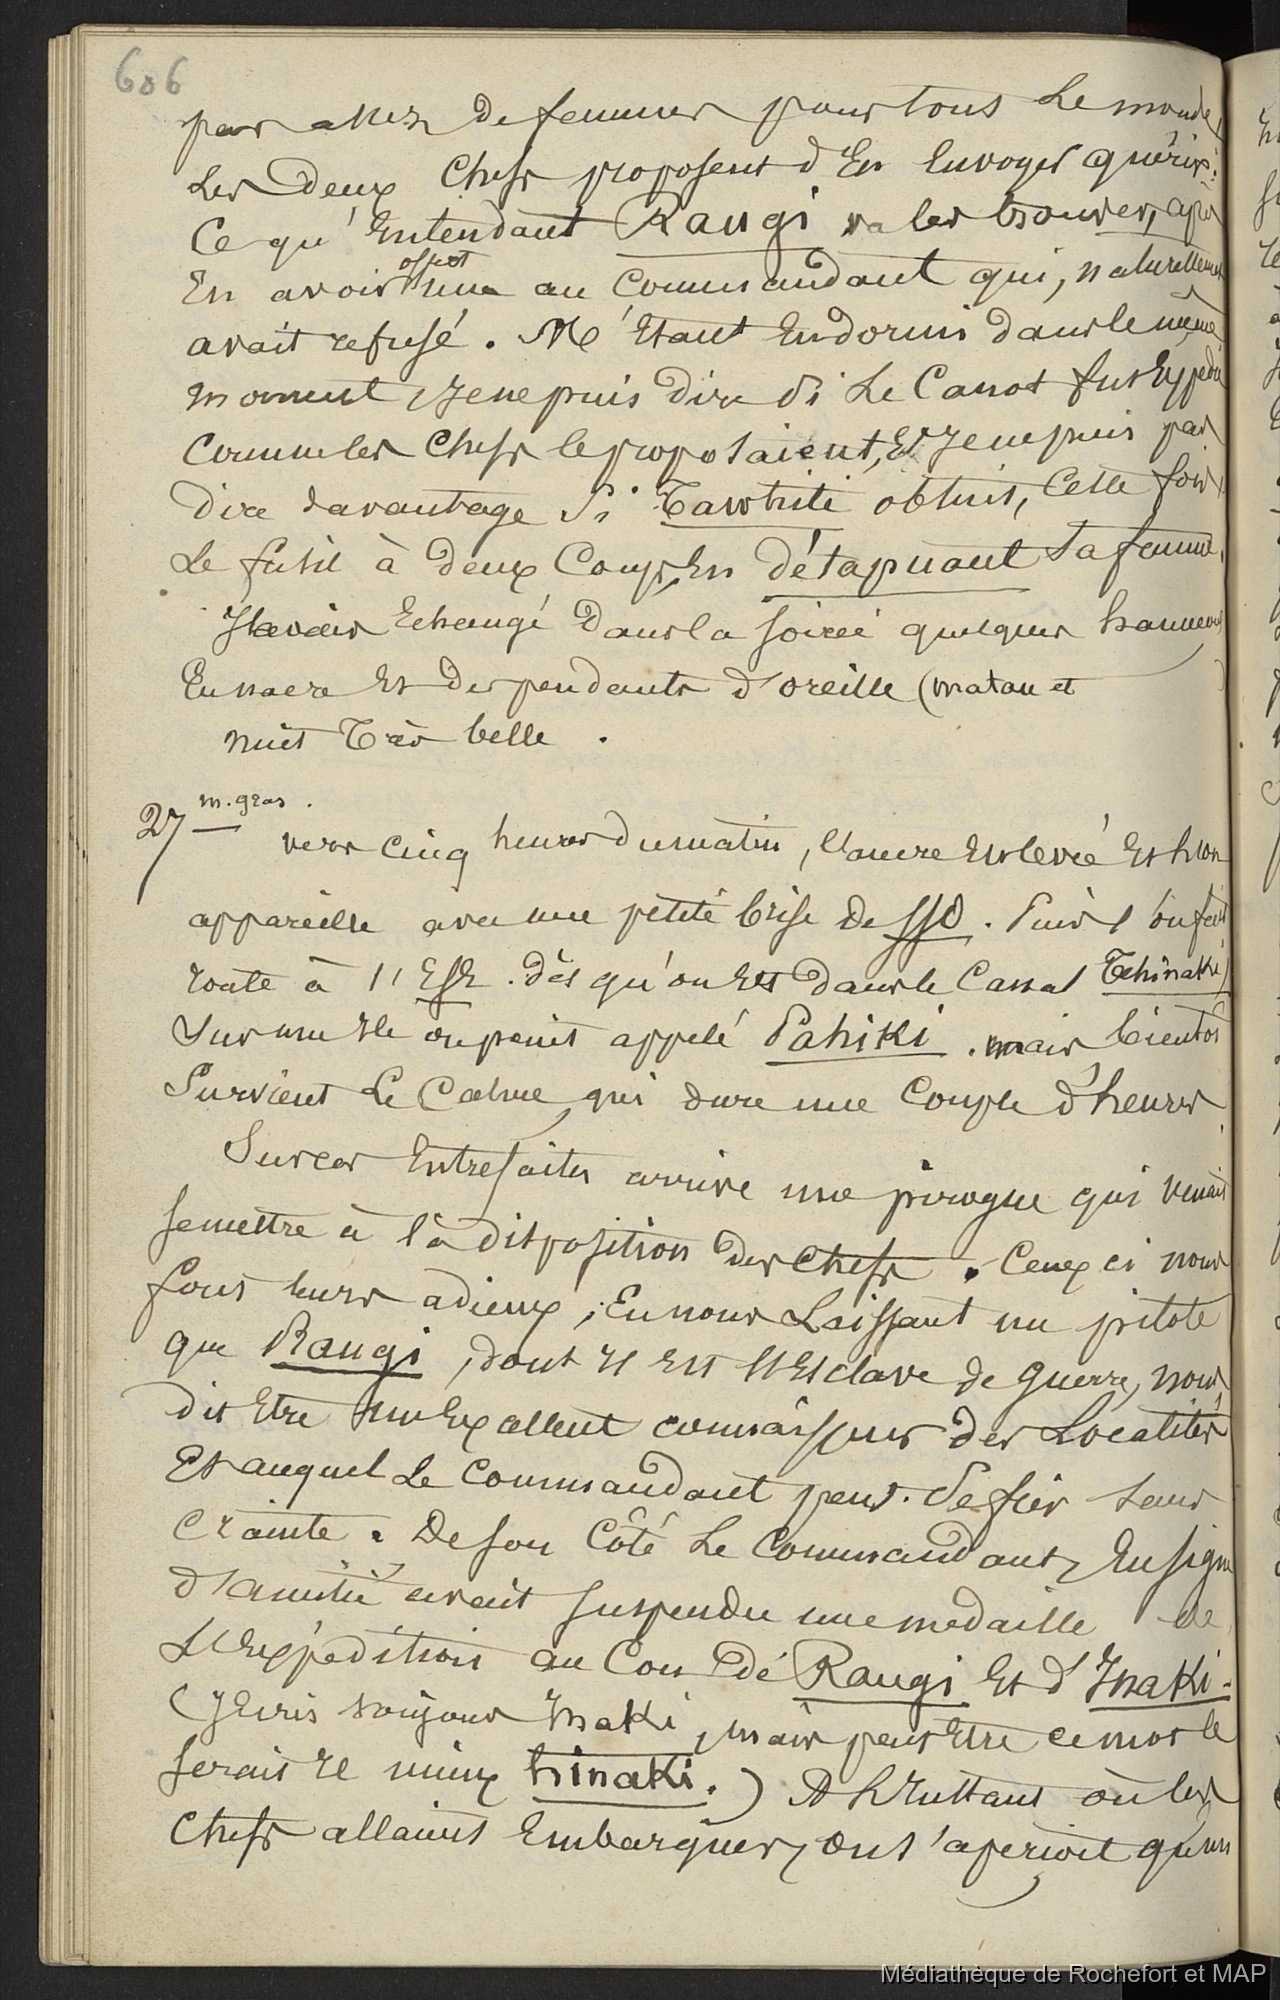 606
pas assez de femmes pour tous le monde,
les deux chefs proposent d'en envoyer quérir.
Ce qu'entendant Rangi va les trouver, après
en avoir offert une au commandant qui, naturellement
avait refusé. M'étant endormi dans le même
moment, je ne puis dire si le canot fut expédié
comme les chefs le proposaient, et je ne puis pas
dire davantage si Tawhiti obtint, cette fois,
le fusil à deux coups, en détapuant sa femme.
J'avais échangé dans la soirée quelques hameçons
en nacre et des pendants d'oreille (matau et
nuit très belle.
27 m. gras.
vers cinq heures du matin, l'ancre est levée et l'on
appareille avec une petite brise de SSO. Puis l'on fait
route à l'ESE. dès qu'on est dans le canal
sur une île ou point appelé Pahiki. mais bientôt
survient le calme, qui dure une couple d'heures.
Sur ces entrefaites arrive une pirogue qui venait
se mettre à la disposition des chefs. Ceux ci nous
font leurs adieux, en nous laissant un pilote
que Rangi, dont il est l'esclave de guerre, nous
dit être un excellent connaisseur des localités
et auquel le commandant peut se fier sans
crainte. De son côté le commandant, en signe
d'amitié avait suspendu une médaille de
l'expédition au cou de Rangi et d'Inaki.
(J'écris toujours Inaki, mais peut être ce mot le
serait il mieux hinaki.) A l'instant où les
chefs allaient embarquer, on s'aperçoit qu'un
Médiathèque de Rochefort et MAP